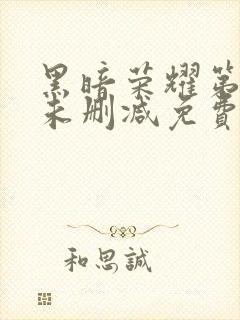 黑暗荣耀第
未删减免費
和思誠